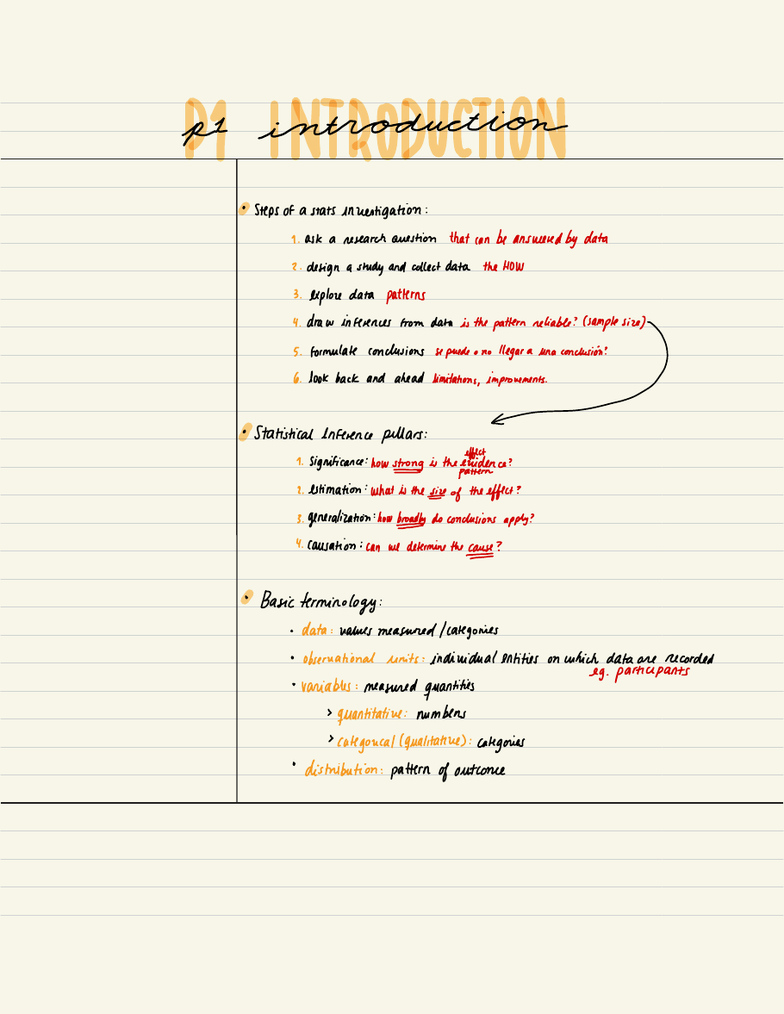 P1 INTRODUCTION
p1 introduction
• Steps of a stats investigation:
1. ask a research question that can be answered by data
2. design a study and collect data the HOW
3. explore data patterns
4. draw inferences from data is the pattern reliable? (sample size)
5. formulate conclusions se puede o no llegar a una conclusión?
6. look back and ahead limitations, improvements.
• Statistical Inference pillars:
effect
1. Significance: how strong is the evidence?
pattern
2. estimation: what is the size of the effect?
3. generalization: how broadly do conclusions apply?
4. causation: can we determine the cause?
• Basic terminology:
• data: values measured/categories
• observational units: individual entities on which data are recorded
eg. participants
• variables: measured quantities
> quantitative: numbers
> categorical (qualitative): categories
• distribution: pattern of outcome